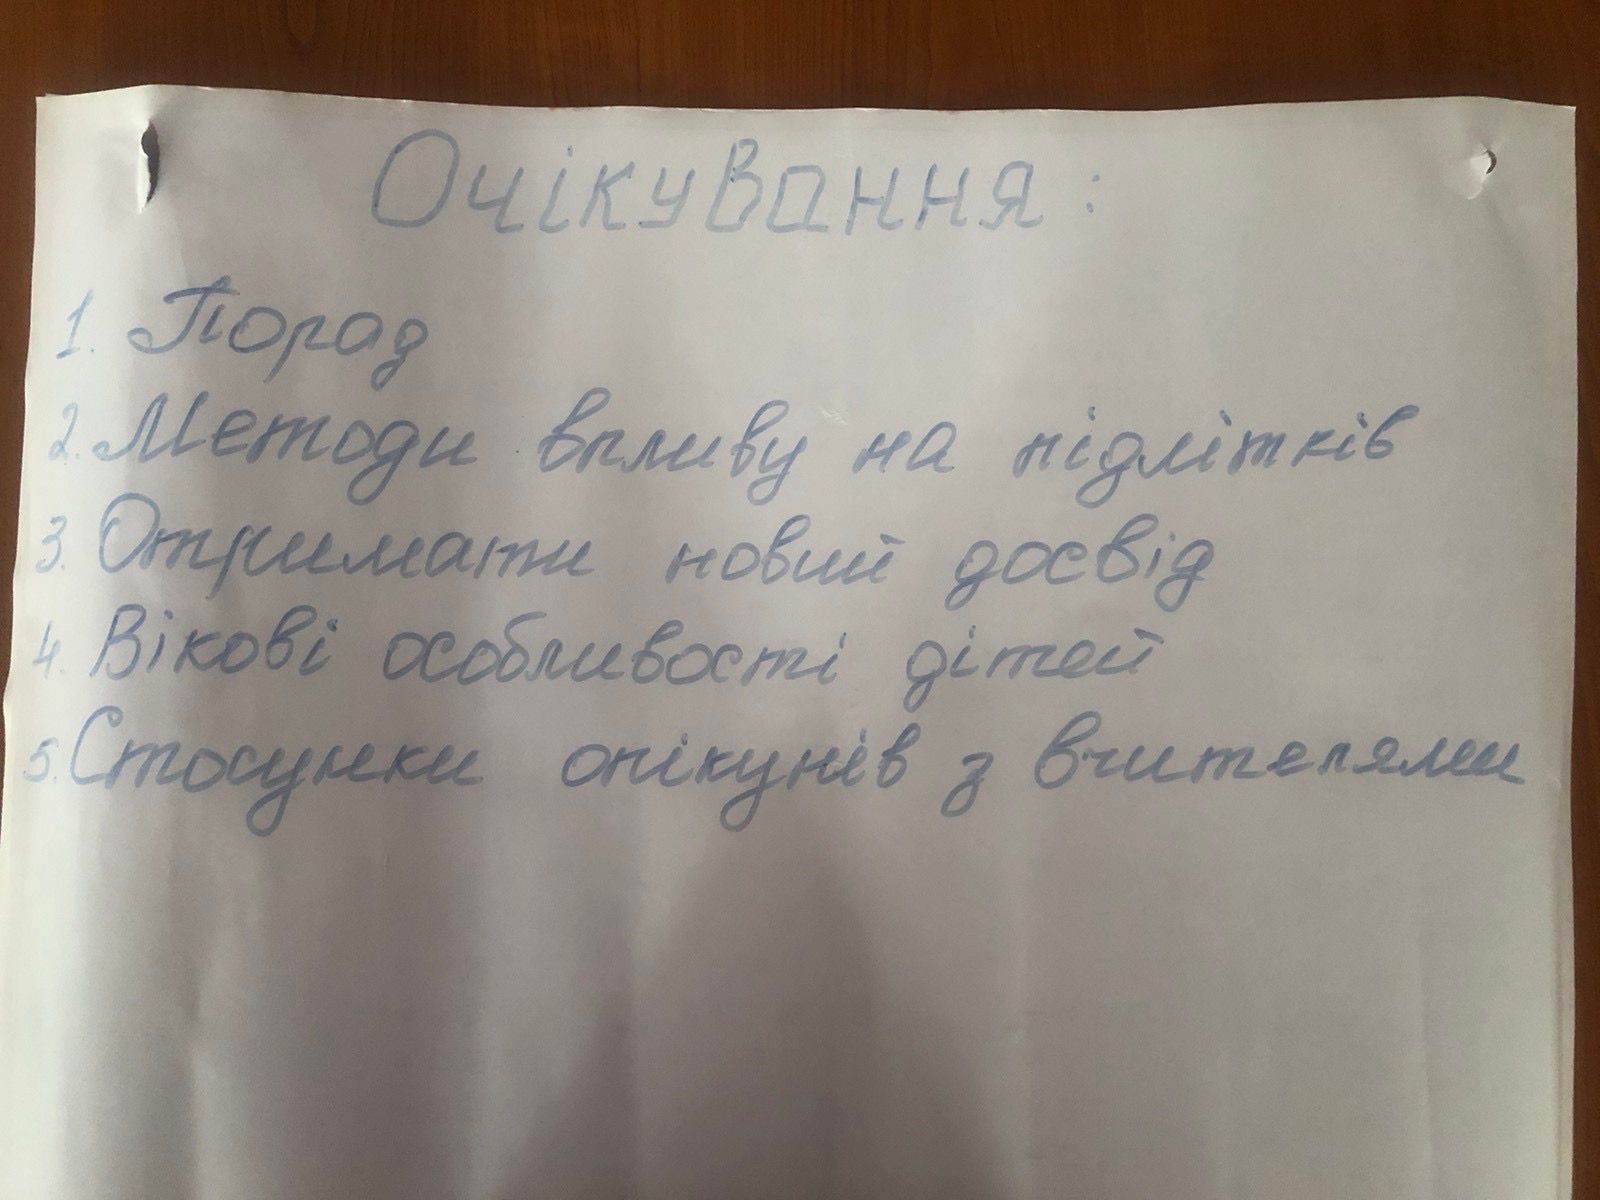 Очікування:
1. Порад
2. Методи впливу на підлітків
3. Отримати новий досвід
4. Вікові особливості дітей
5. Стосунки опікунів з вчителями